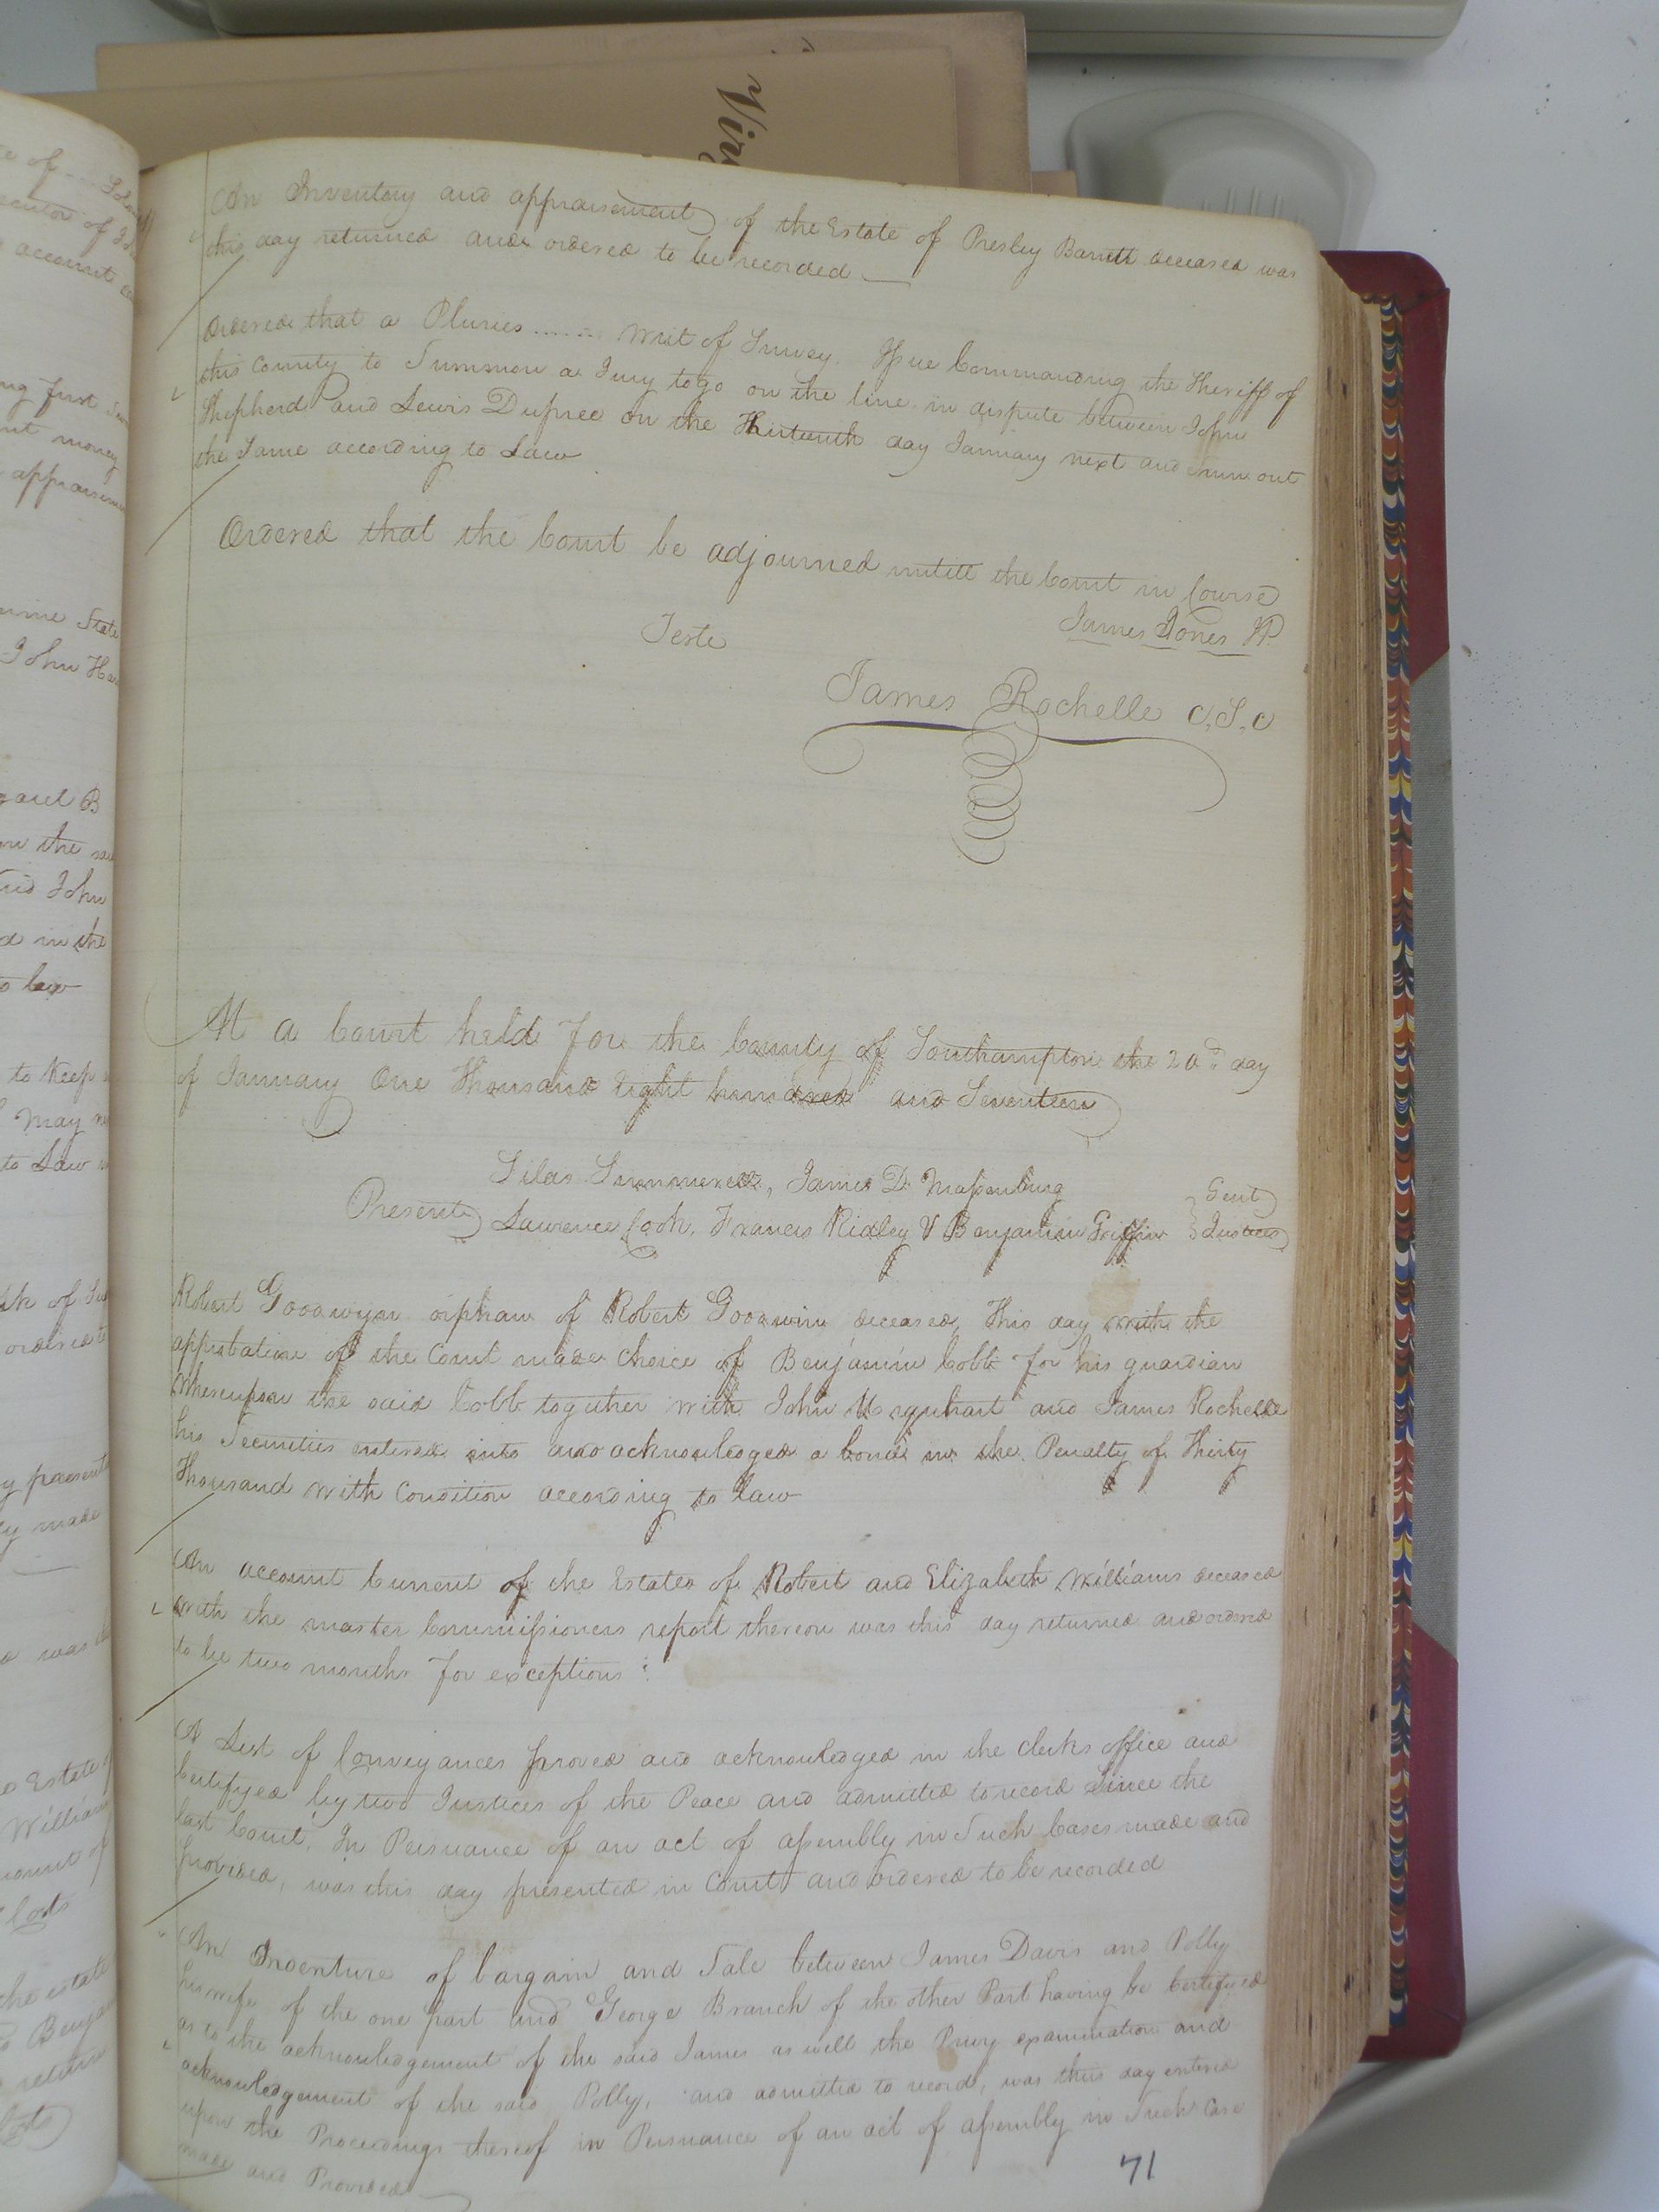 Vir
An Inventory and appraisement of the Estate of Presley Barrett deceased was
this day returned and ordered to be recorded
Ordered that a Pluries ....... writ of Survey. Issue Commanding the Sheriff of
this County to Summon a Jury to go on the line in dispute between John
Shepherd and Lewis Dupree on the Thirteenth day January next and Survey out
the Same according to Law
Ordered that the Court be adjourned untill the Court in Course
James Jones JP.
Teste
James Rochelle C.S.C
At a Court held for the County of Southampton the 20th day
of January One Thousand Eight hundred and Seventeen
Silas Summerell, James D. Massenburg
Present Lawrence Cook, Francis Ridley & Benjamin Griffin
Gent
Justices
Robert Goodwyn orphan of Robert Goodwin deceased, This day with the
approbation of the Court made choice of Benjamin Cobb for his guardian
Whereupon the said Cobb together with John Urquhart and James Rochelle
his Securities entered into and acknowledged a bond in the Penalty of Thirty
Thousand with Condition according to law
An account Current of the Estates of Robert and Elizabeth Williams deceased
with the master Commissioners report thereon was this day returned and ordered
to lie two months for exceptions
A List of Conveyances proved and acknowledged in the clerks office and
Certifyed by two Justices of the Peace and admitted to record Since the
last Court, In Persuance of an act of assembly in Such Cases made and
provided, was this day presented in Court and ordered to be recorded
An Indenture of bargain and Sale between James Davis and Polly
his wife of the one part and George Branch of the other Part having be Certifyed
as to the acknowledgement of the said James as well the Privy examination and
acknowledgement of the said Polly, and admitted to record, was this day entered
upon the Proceedings thereof in Persuance of an act of assembly in Such Case
made and Provided
71